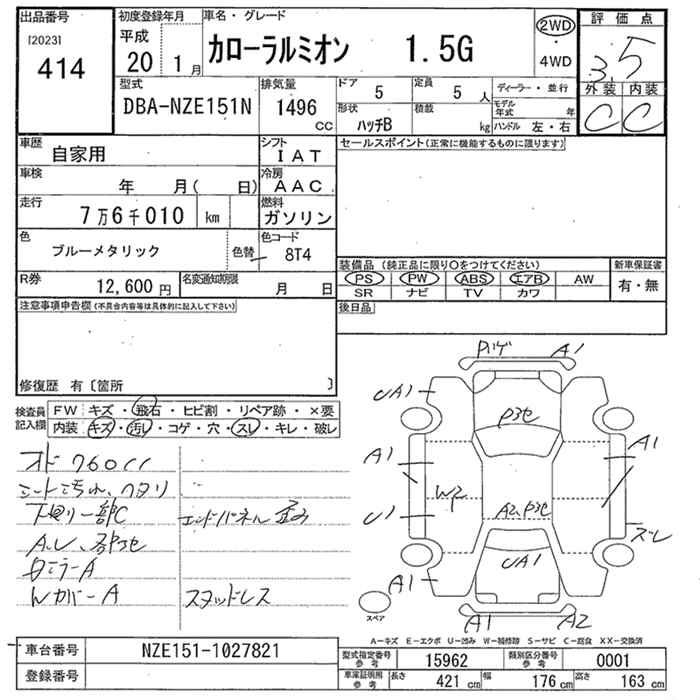 出品番号
[2023]
414
初度登録年月
平成
20 1月
車名・グレード
カローラルミオン 1.5G
2WD
・
4WD
評価点
3.5
外装 内装
C C
型式
DBA-NZE151N
排気量
1496
cc
ドア
5
定員
5 人
形状
ハッチB
積載
kg
ディーラー・並行
モデル年式 年
ハンドル 左・右
車歴
自家用
シフト
IAT
車検
年 月( 日)
冷房
AAC
走行
7万6千010 km
燃料
ガソリン
色
ブルーメタリック
色替
色コード
8T4
R券
12,600 円
名変通知期限
月 日
セールスポイント(正常に機能するものに限ります)
装備品(純正品に限り○をつけてください)
PS PW ABS エアB AW
SR ナビ TV カワ
新車保証書
有・無
後日品
注意事項申告欄(不具合内容等は具体的に記入して下さい)
修復歴 有〔箇所 〕
検査員記入欄
FW キズ・飛石・ヒビ割・リペア跡・×要
内装 キズ・汚れ・コゲ・穴・スレ・キレ・破レ
シート汚れ、ヘタリ
下廻り一部C
エンドパネル歪み
WカバーA
スタッドレス
A1
UA1
A1
A1
W2
U1
UA1
A1
A1
A2
ズレ
スペア
A-キズ E-エクボ U-凹み W-補修跡 S-サビ C-腐食 XX-交換済
車台番号
NZE151-1027821
登録番号
型式指定番号参考
15962
類別区分番号参考
0001
車庫証明用参考
長さ 421 cm
幅 176 cm
高さ 163 cm